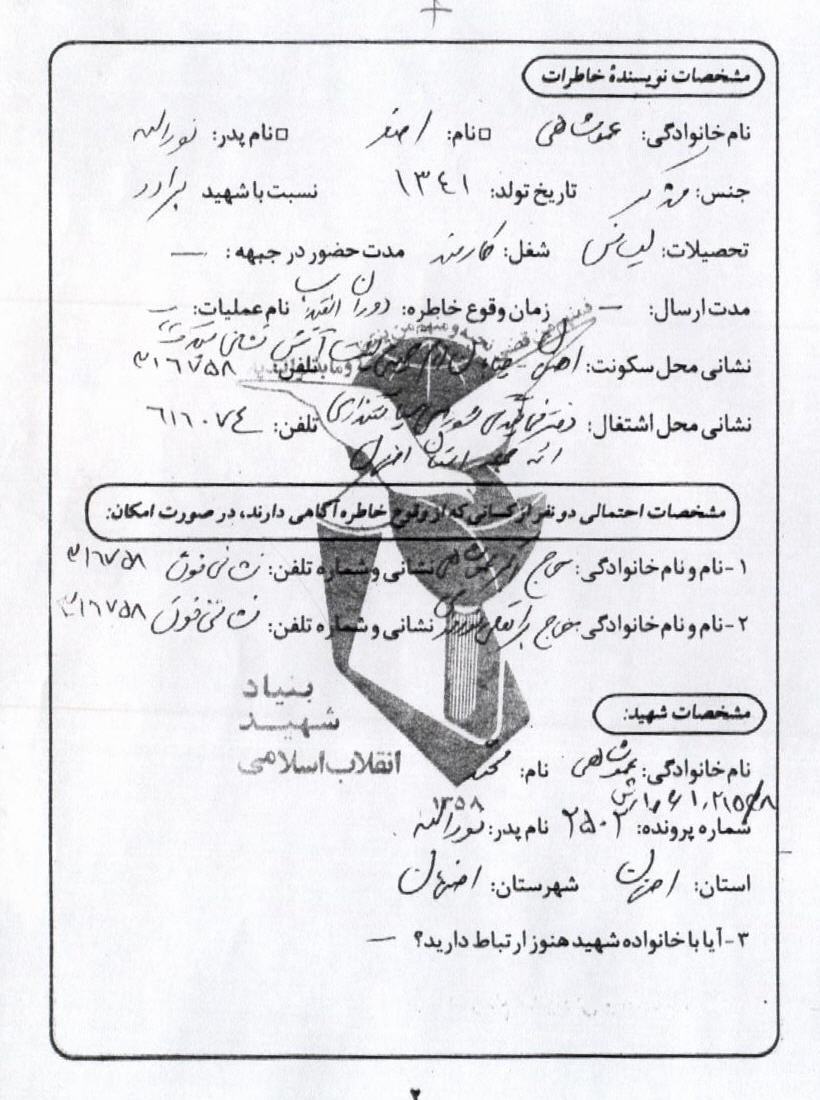 مشخصات نویسندهٔ خاطرات
نام خانوادگی: عموشاهی □نام: اصغر □نام پدر: نوراله
جنس: مذکر تاریخ تولد: ۱۳۴۱ نسبت با شهید برادر
تحصیلات: لیسانس شغل: کارمند مدت حضور در جبهه: —
مدت ارسال: — زمان وقوع خاطره: دوران انقلاب نام عملیات: —
نشانی محل سکونت: تلفن: ۳۱۶۷۵۸
نشانی محل اشتغال: تلفن: ۶۱۱۰۷۴
مشخصات احتمالی دو نفر از کسانی که از وقوع خاطره آگاهی دارند، در صورت امکان:
۱-نام و نام خانوادگی: حاج نشانی و شماره تلفن: نشانی فوق ۳۱۶۷۵۸
۲-نام و نام خانوادگی: حاج نشانی و شماره تلفن: نشانی فوق ۳۱۶۷۵۸
بنیاد
شهید
انقلاب اسلامی
۱۳۵۸
مشخصات شهید:
نام خانوادگی: عموشاهی نام: محمد
شماره پرونده: ۲۵۰۲ نام پدر: نوراله
استان: اصفهان شهرستان: اصفهان
۳-آیا با خانواده شهید هنوز ارتباط دارید؟ —
۲